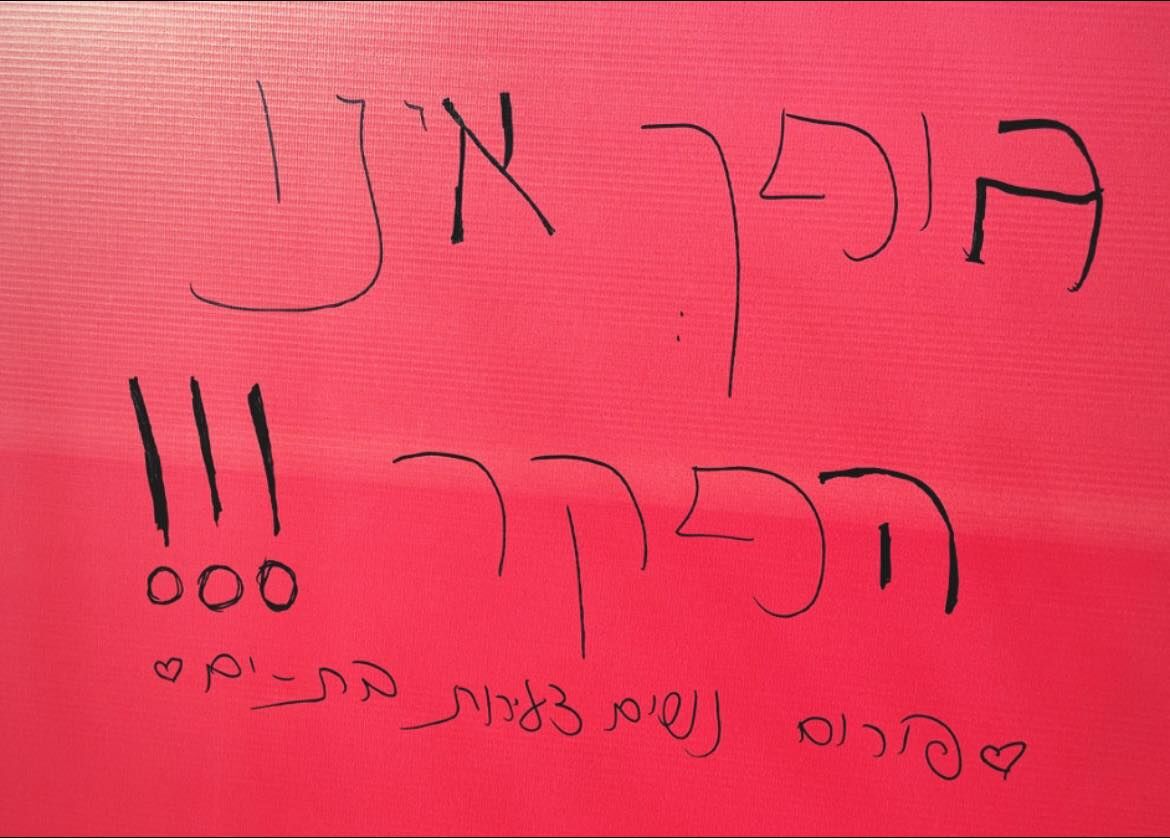 גופךְ אינו
הפקר!!!
♡פורום נשים צעירות בת-ים♡